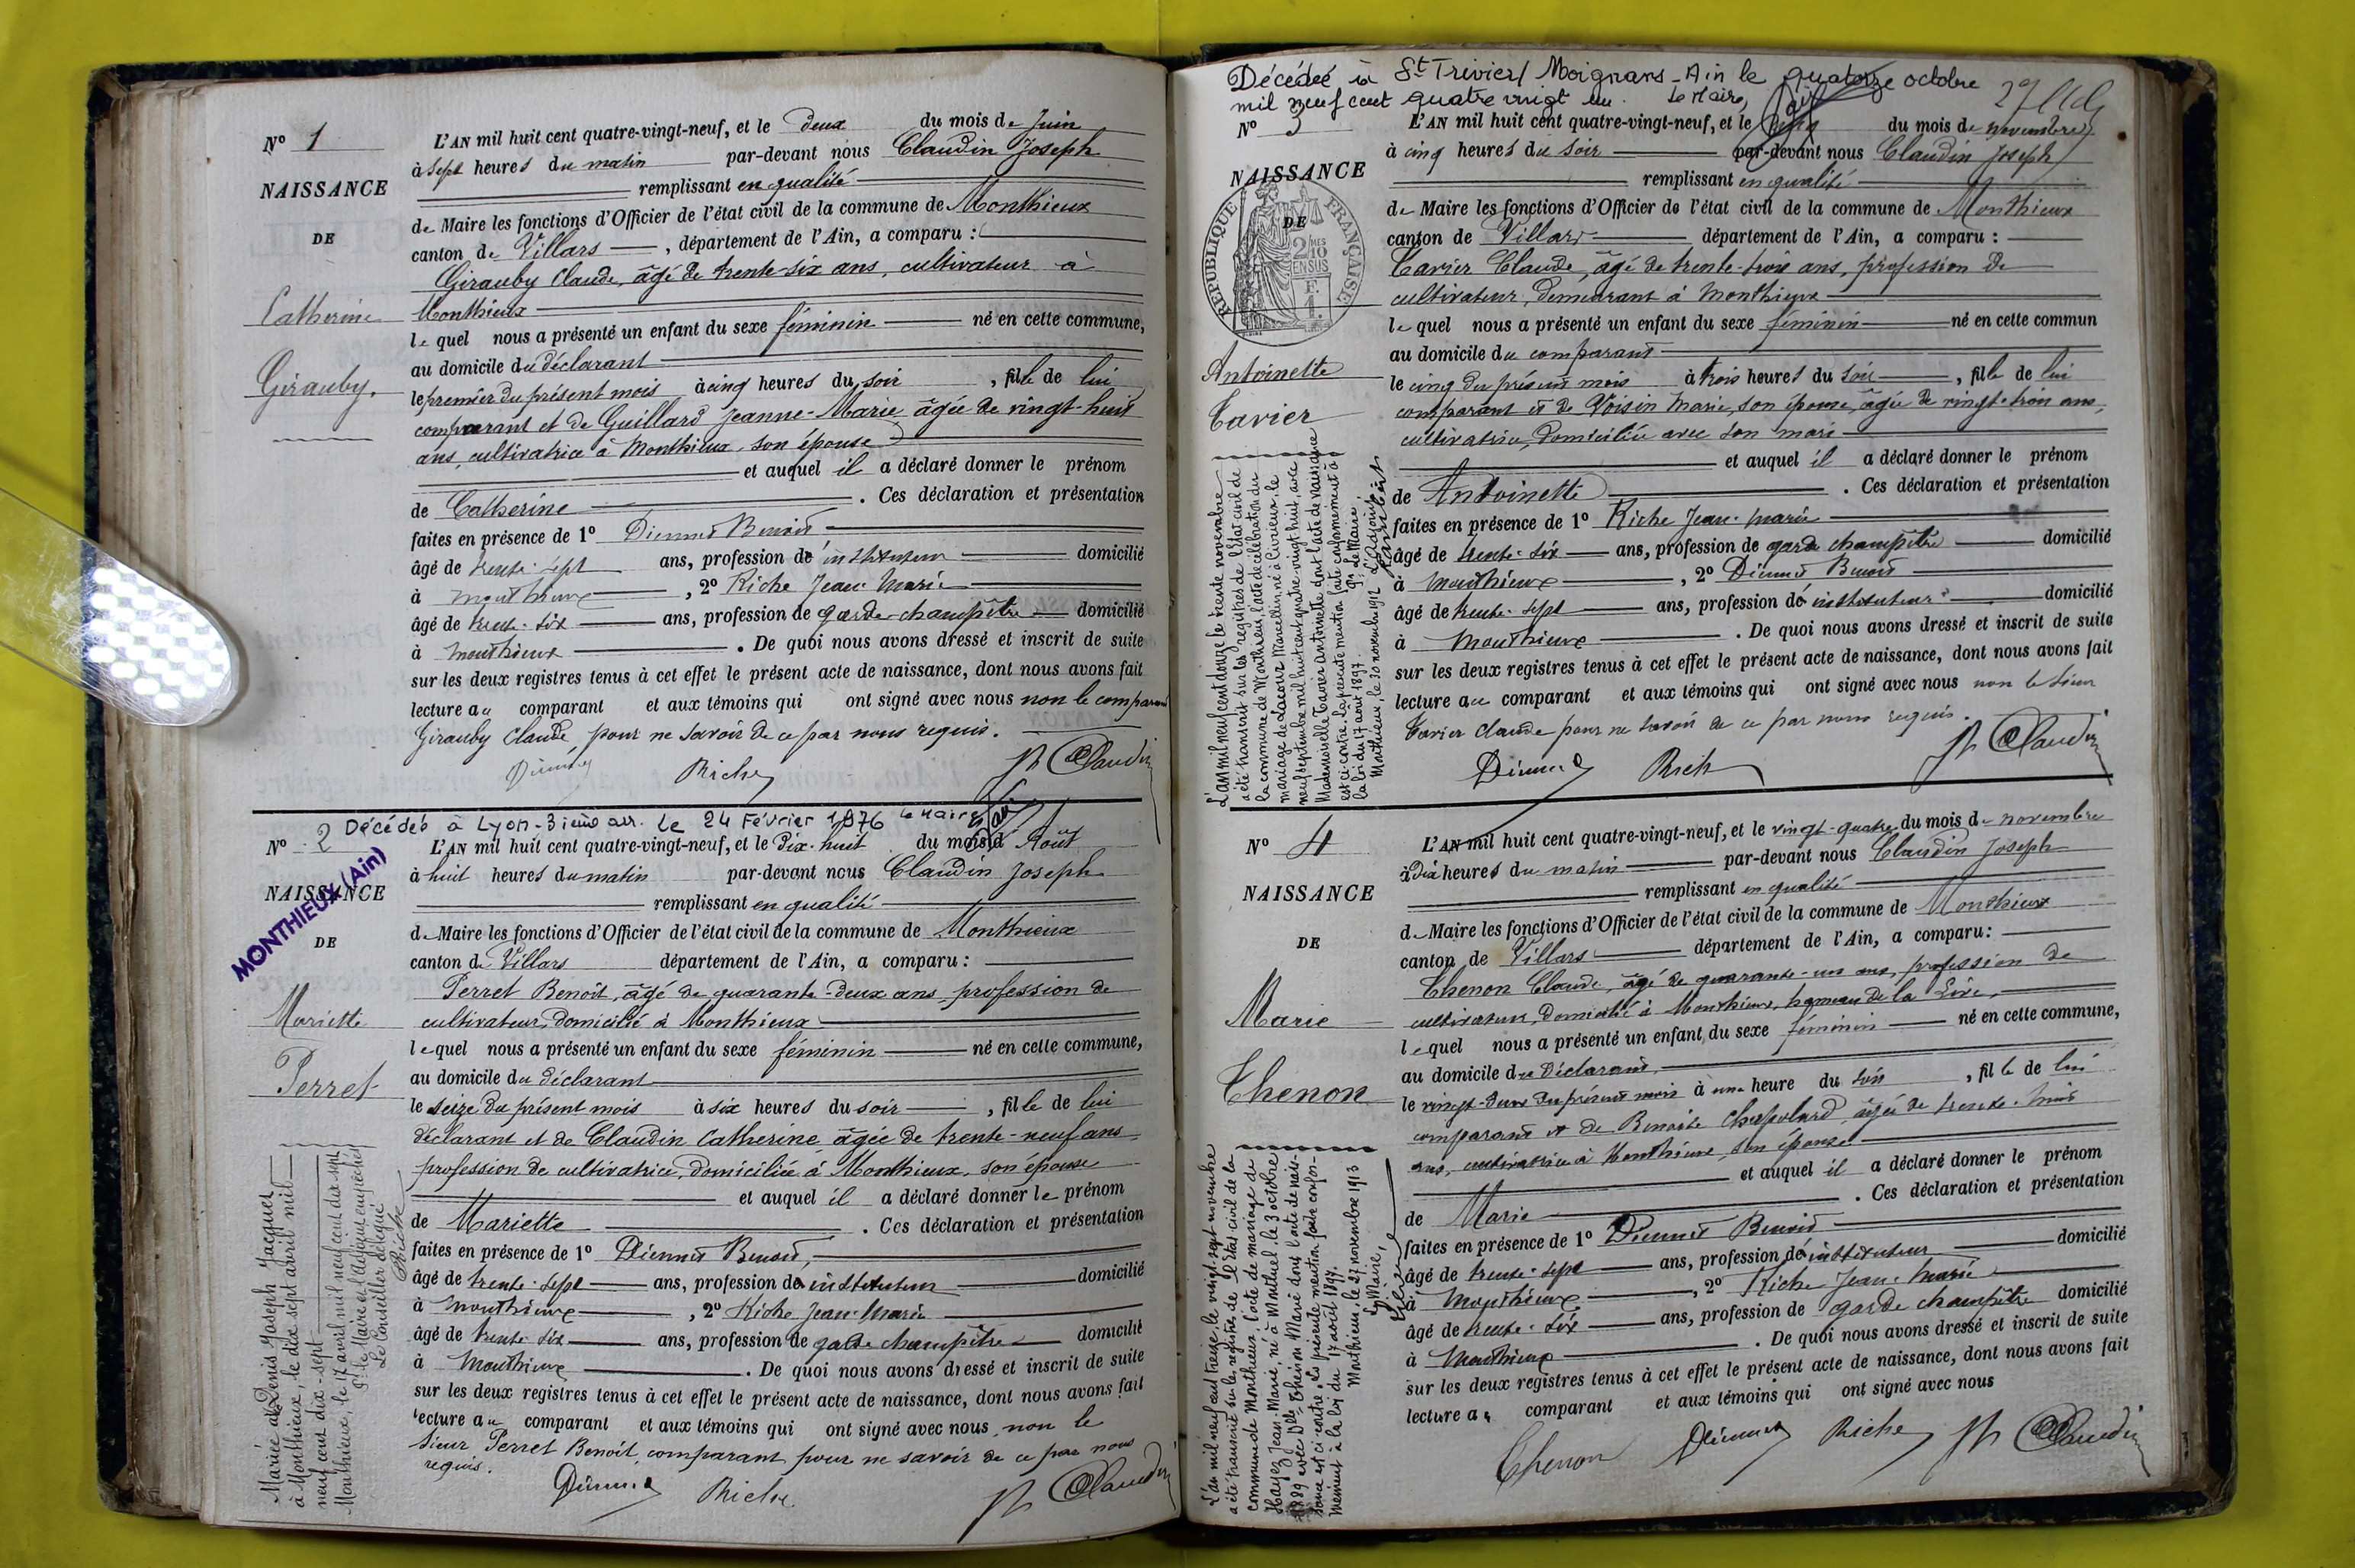 Nº 1
NAISSANCE
DE
Catherine
Girauby.
L'AN mil huit cent quatre-vingt-neuf, et le deux du mois de Juin
à sept heures du matin par-devant nous Claudin Joseph
remplissant en qualité
de Maire les fonctions d'Officier de l'état civil de la commune de Monthieux
canton de Villars, département de l'Ain, a comparu :
Girauby Claude, âgé de trente-six ans, cultivateur à
Monthieux
lequel nous a présenté un enfant du sexe féminin né en cette commune,
au domicile du déclarant
le premier du présent mois à cinq heures du soir, fille de lui
comparant et de Guillard Jeanne-Marie âgée de vingt-huit
ans, cultivatrice à Monthieux, son épouse
et auquel il a déclaré donner le prénom
de Catherine. Ces déclaration et présentation
faites en présence de 1º Diennet Benoit
âgé de trente-sept ans, profession de instituteur domicilié
à Monthieux, 2º Riche Jean-Marie
âgé de trente-six ans, profession de garde-champêtre domicilié
à Monthieux. De quoi nous avons dressé et inscrit de suite
sur les deux registres tenus à cet effet le présent acte de naissance, dont nous avons fait
lecture au comparant et aux témoins qui ont signé avec nous non le comparant
Girauby Claude, pour ne savoir de ce par nous requis.
Diennet Riche Jh Claudin
Décédée à Lyon-3ième arr. le 24 Février 1976 le Maire
Nº 2
MONTHIEUX (Ain)
NAISSANCE
DE
Mariette
Perret
L'AN mil huit cent quatre-vingt-neuf, et le Dix-huit du mois d'Août
à huit heures du matin par-devant nous Claudin Joseph
remplissant en qualité
de Maire les fonctions d'Officier de l'état civil de la commune de Monthieux
canton de Villars département de l'Ain, a comparu :
Perret Benoit, âgé de quarante-deux ans, profession de
cultivateur, domicilié à Monthieux
lequel nous a présenté un enfant du sexe féminin né en cette commune,
au domicile du déclarant
le seize du présent mois à six heures du soir, fille de lui
déclarant et de Claudin Catherine âgée de trente-neuf ans,
profession de cultivatrice, domiciliée à Monthieux, son épouse
et auquel il a déclaré donner le prénom
de Mariette. Ces déclaration et présentation
faites en présence de 1º Diennet Benoit,
âgé de trente-sept ans, profession de instituteur domicilié
à Monthieux, 2º Riche Jean-Marie
âgé de trente-six ans, profession de garde champêtre domicilié
à Monthieux. De quoi nous avons dressé et inscrit de suite
sur les deux registres tenus à cet effet le présent acte de naissance, dont nous avons fait
lecture au comparant et aux témoins qui ont signé avec nous non le
sieur Perret Benoit, comparant, pour ne savoir de ce par nous
requis.
Diennet Riche Jh Claudin
Mariée à Denis Joseph Jacques
à Monthieux, le dix sept avril mil
neuf cent dix-sept
Monthieux, le 17 avril mil neuf cent dix sept
Pr le Maire et l'adjoint empêchés
Le Conseiller délégué
Riche
Décédée à St Trivier/ Moignans - Ain le quatorze octobre
mil neuf cent quatre vingt un. Le Maire,
Nº 3
NAISSANCE
DE
RÉPUBLIQUE FRANÇAISE
2/10 EN SUS
F.
1.
Antoinette
Tavier
L'AN mil huit cent quatre-vingt-neuf, et le du mois de novembre
à cinq heures du soir par-devant nous Claudin Joseph
remplissant en qualité
de Maire les fonctions d'Officier de l'état civil de la commune de Monthieux
canton de Villars département de l'Ain, a comparu :
Tavier Claude, âgé de trente-trois ans, profession de
cultivateur, demeurant à Monthieux
lequel nous a présenté un enfant du sexe féminin né en cette commun
au domicile du comparant
le cinq du présent mois à trois heures du soir, fille de lui
comparant et de Voisin Marie, son épouse, âgée de vingt-trois ans,
cultivatrice, domiciliée avec son mari
et auquel il a déclaré donner le prénom
de Antoinette. Ces déclaration et présentation
faites en présence de 1º Riche Jean-Marie
âgé de trente-six ans, profession de garde champêtre domicilié
à Monthieux, 2º Diennet Benoit
âgé de trente-sept ans, profession de instituteur domicilié
à Monthieux. De quoi nous avons dressé et inscrit de suite
sur les deux registres tenus à cet effet le présent acte de naissance, dont nous avons fait
lecture au comparant et aux témoins qui ont signé avec nous non le sieur
Tavier Claude pour ne savoir de ce par nous requis.
Diennet Riche Jh Claudin
L'an mil neuf cent douze le trente novembre
a été transcrit sur les registres de l'état civil de
la commune de Monthieux, l'acte de célébration du
mariage de Lacour Marcellin, né à Civrieux, le
neuf septembre mil huit cent quatre-vingt huit, avec
Mademoiselle Tavier Antoinette dont l'acte de naissance
est ci-contre. La présente mention faite conformément à
la loi du 17 août 1897. Pr le Maire,
Monthieux, le 30 novembre 1912 L'adjoint
Nº 4
NAISSANCE
DE
Marie
Thenon
L'AN mil huit cent quatre-vingt-neuf, et le vingt-quatre du mois de novembre
à dix heures du matin par-devant nous Claudin Joseph
remplissant en qualité
de Maire les fonctions d'Officier de l'état civil de la commune de Monthieux
canton de Villars département de l'Ain, a comparu :
Thenon Claude, âgé de quarante-un ans, profession de
cultivateur, domicilié à Monthieux, hameau de la
lequel nous a présenté un enfant du sexe féminin né en cette commune,
au domicile du déclarant,
le vingt-deux du présent mois à une heure du soir, fille de lui
comparant et de Benoite Chapolard, âgée de trente-trois
ans, cultivatrice à Monthieux, son épouse
et auquel il a déclaré donner le prénom
de Marie. Ces déclaration et présentation
faites en présence de 1º Diennet Benoit
âgé de trente-sept ans, profession de instituteur domicilié
à Monthieux, 2º Riche Jean-Marie
âgé de trente-six ans, profession de garde champêtre domicilié
à Monthieux. De quoi nous avons dressé et inscrit de suite
sur les deux registres tenus à cet effet le présent acte de naissance, dont nous avons fait
lecture au comparant et aux témoins qui ont signé avec nous
Thenon Diennet Riche Jh Claudin
L'an mil neuf cent treize le vingt-sept novembre
a été transcrit sur les registres de l'état civil de la
commune de Monthieux l'acte de mariage de
Hayez Jean-Marie, né à Montluel le 3 octobre
1889 avec Dlle Thenon Marie dont l'acte de nais-
sance est ci-contre. La présente mention faite confor-
mément à la loi du 17 août 1897.
Monthieux, le 27 novembre 1913
Le Maire,